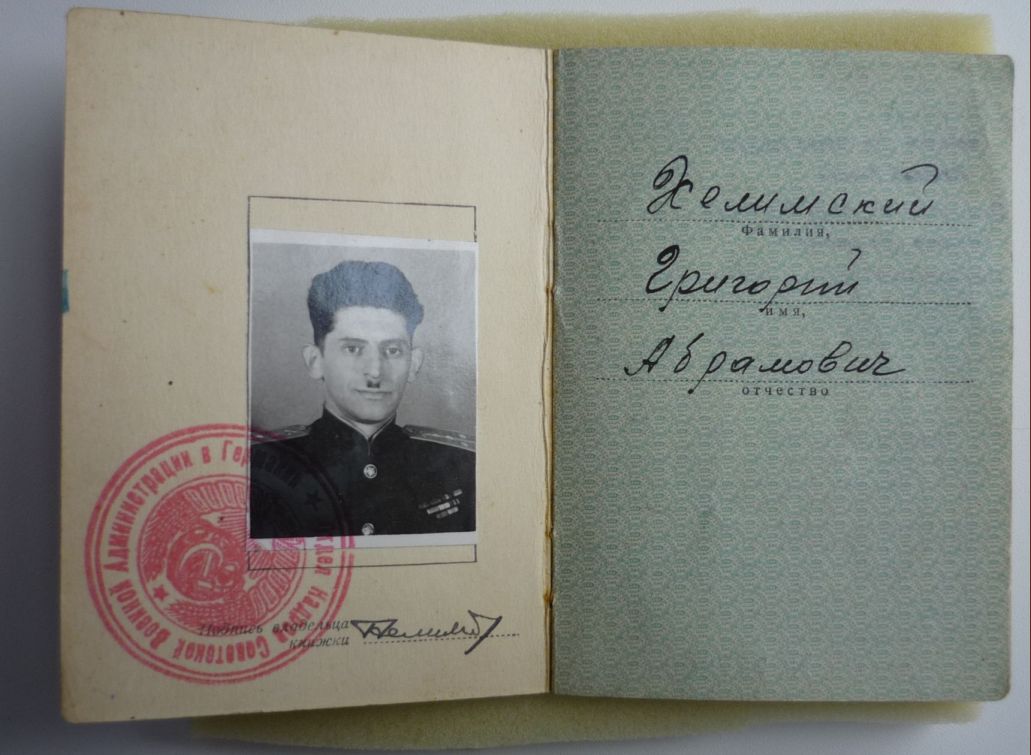 Отдел кадров Советской Военной Администрации в Германии
Подпись владельца
книжки
Хелимский
фамилия,
Григорий
имя,
Абрамович
отчество